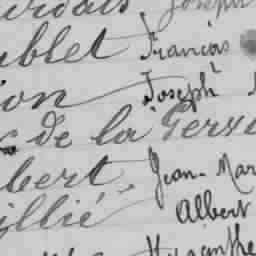 Joseph
ublet François
ion Joseph
de la Perse
bert Jean-Mar
illié Albert
Hyacinthe